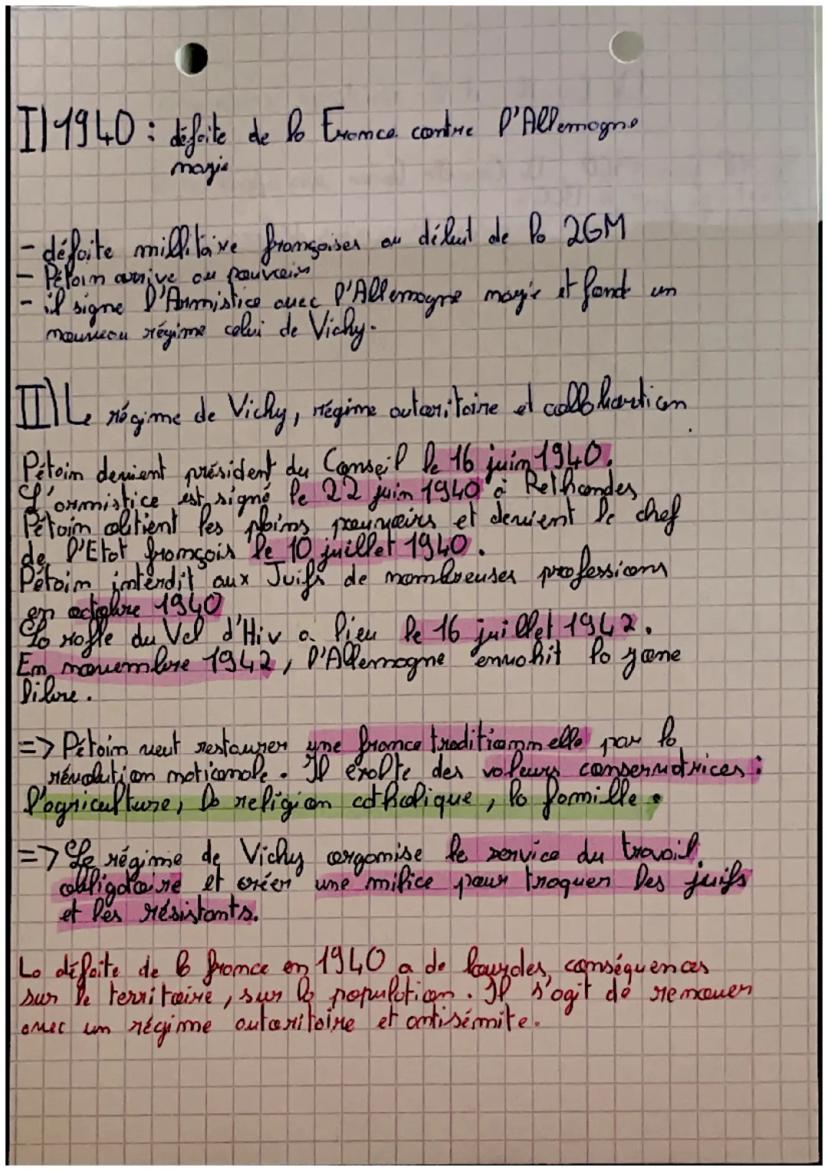 I) 1940 : défaite de la France contre l'Allemagne
nazie
- défaite millitaire françaises au début de la 2GM
- Pétain arrive au pouvoir
- il signe l'Armistice avec l'Allemagne nazie et fond un
nouveau régime celui de Vichy.
II) Le régime de Vichy, régime autoritaire et collbhartion
Pétain devient président du Conseil le 16 juin 1940.
L'armistice est signé le 22 juin 1940 à Rethondes
Pétain obtient les pleins pouvoirs et devient le chef
de l'Etat français le 10 juillet 1940.
Pétain interdit aux Juifs de nombreuses professions
en octobre 1940
La rafle du Vel d'Hiv a lieu le 16 juillet 1942.
En novembre 1942, l'Allemagne envahit la zone
libre.
=> Pétain veut restaurer une france traditionnelle par la
révolution nationale. Il exalte des valeurs conservatrices :
l'agriculture, la religion catholique, la famille.
=> Le régime de Vichy organise le service du travail
obligatoire et créer une milice pour traquer les juifs
et les résistants.
La défaite de la france en 1940 a de lourdes conséquences
sur le territoire, sur la population. Il s'agit de renouer
avec un régime autoritaire et antisémite.